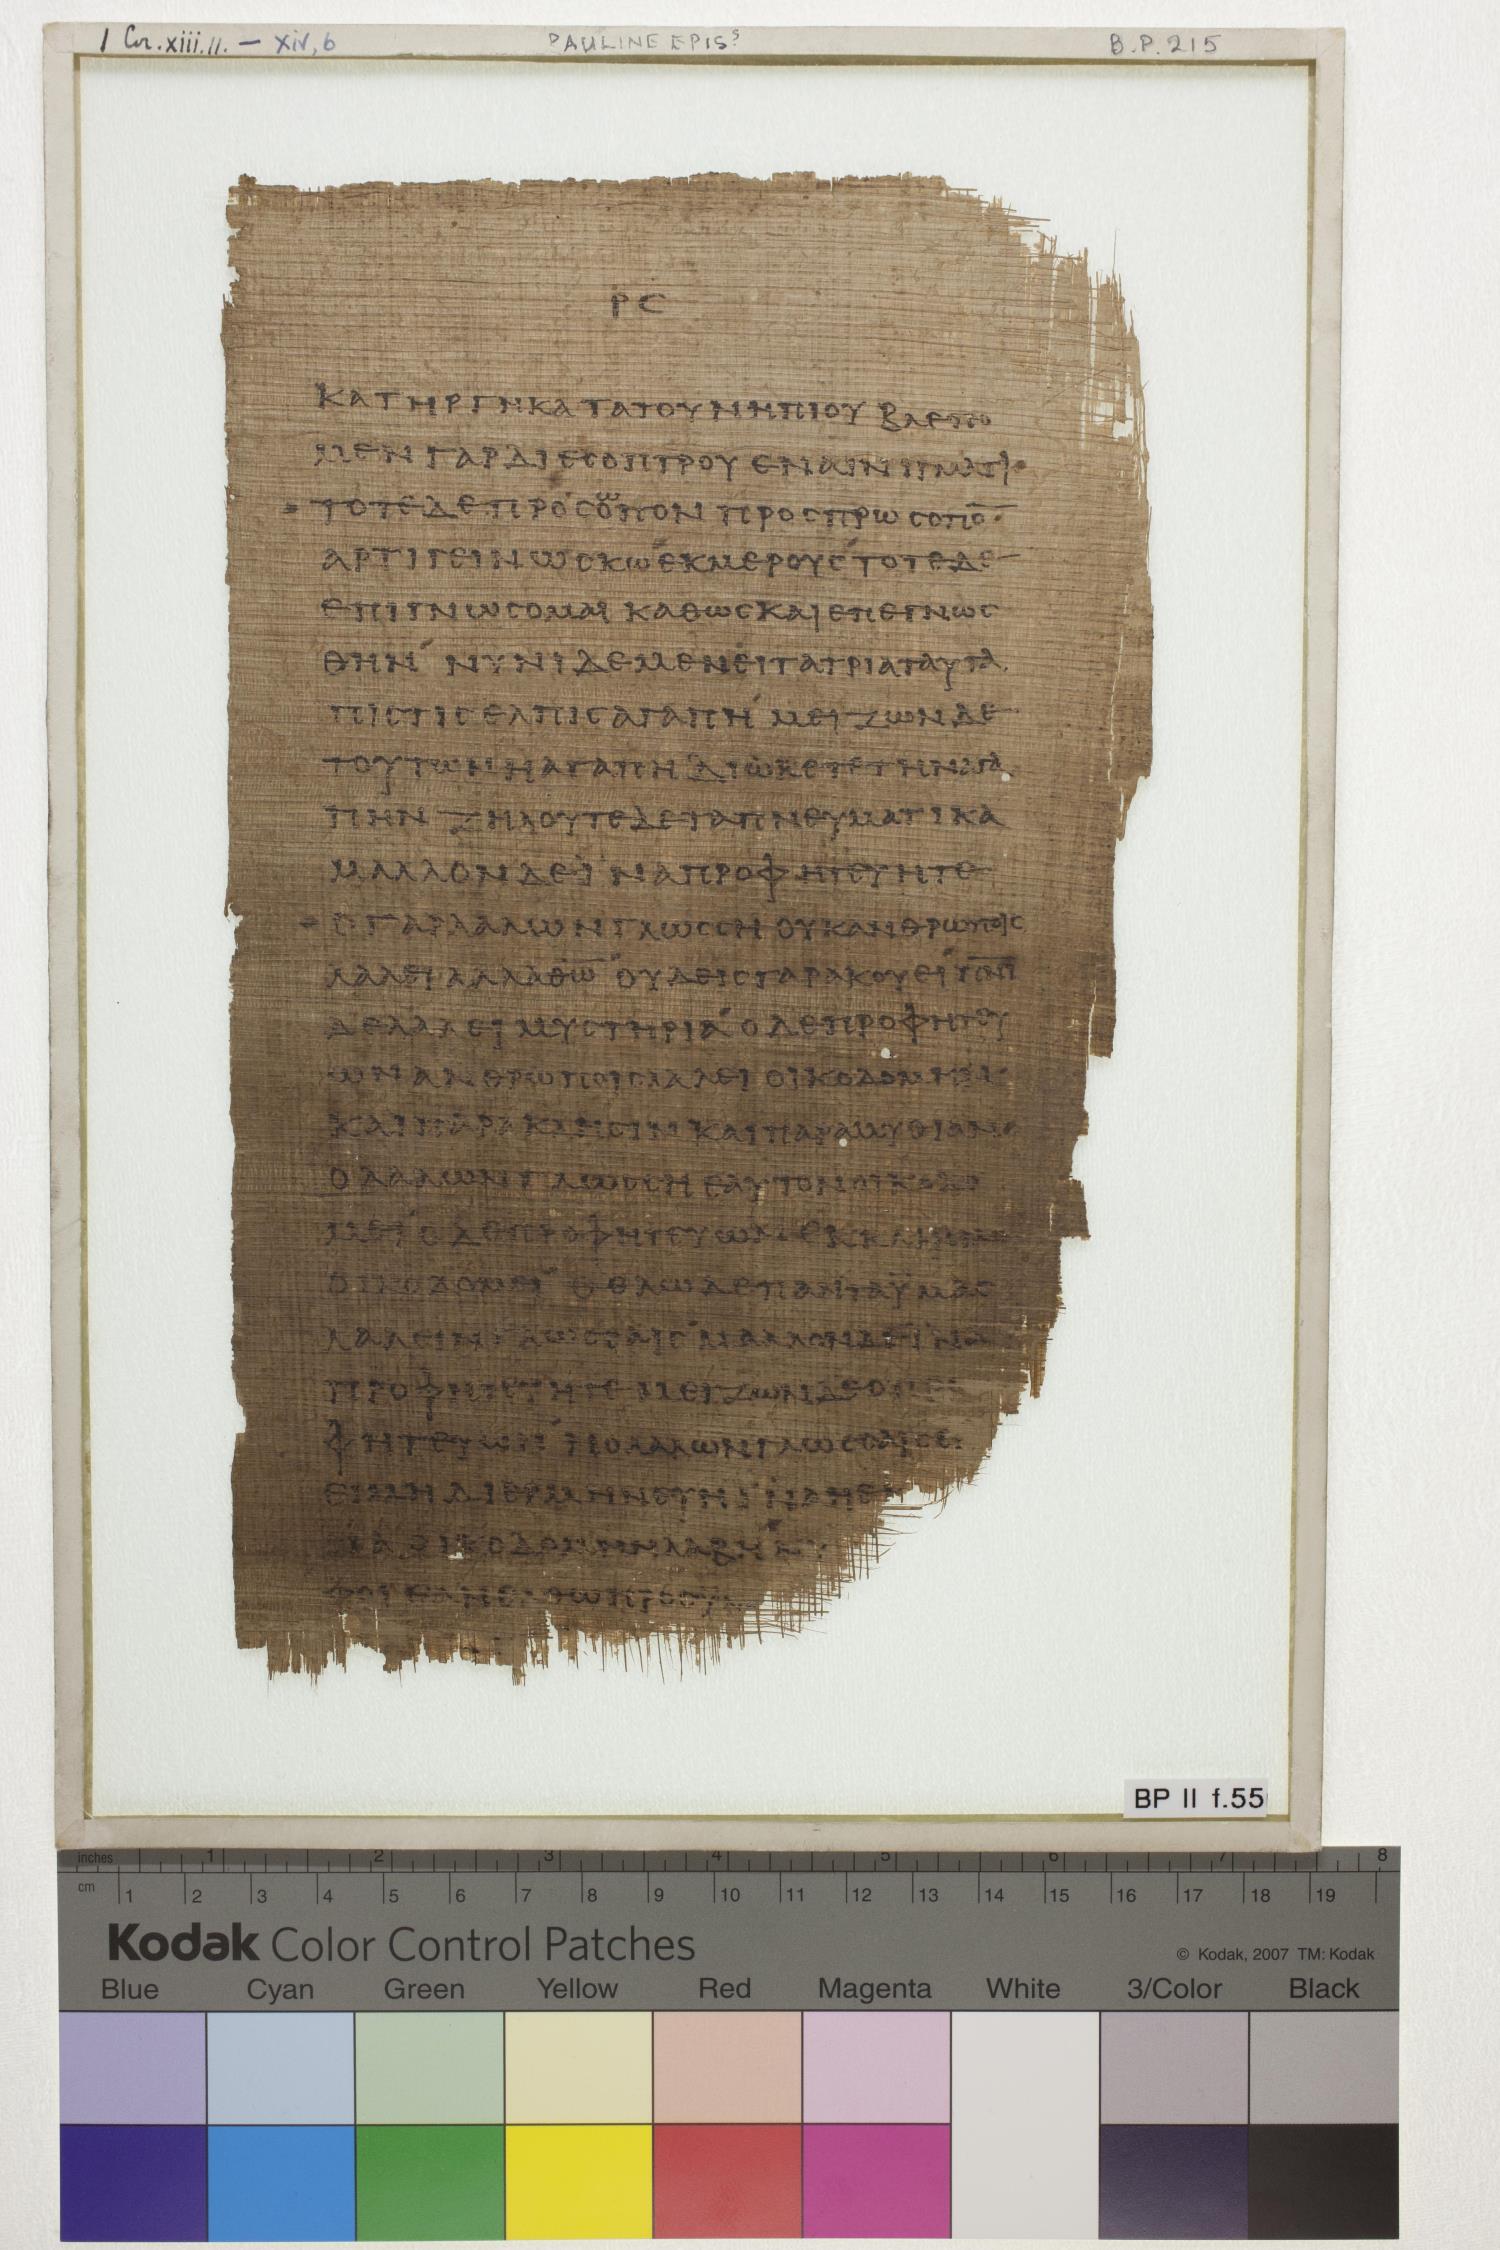 1 Cor. xiii. 11. — xiv, 6
PAULINE EPISS
B.P. 215
ΡϹ
ΚΑΤΗΡΓΗΚΑ ΤΑΤΟΥΝΗΠΙΟΥ ΒΛΕΠΟ
ΜΕΝ ΓΑΡ ΔΙ ΕϹΟΠΤΡΟΥ ΕΝ ΑΙΝΙΓΜΑΤΙ
ΤΟΤΕ ΔΕ ΠΡΟϹΟΠΟΝ ΠΡΟϹ ΠΡΩϹΟΠΟ̅
ΑΡΤΙ ΓΕΙΝΩϹΚΩ ΕΚ ΜΕΡΟΥϹ ΤΟΤΕ ΔΕ
ΕΠΙΓΝΩϹΟΜΑΙ ΚΑΘΩϹ ΚΑΙ ΕΠΕΓΝΩϹ
ΘΗΝ ΝΥΝΙ ΔΕ ΜΕΝΕΙ ΤΑ ΤΡΙΑ ΤΑΥΤΑ
ΠΙϹΤΙϹ ΕΛΠΙϹ ΑΓΑΠΗ ΜΕΙΖΩΝ ΔΕ
ΤΟΥΤΩΝ Η ΑΓΑΠΗ ΔΙΩΚΕΤΕ ΤΗΝ ΑΓΑ
ΠΗΝ ΖΗΛΟΥΤΕ ΔΕ ΤΑ ΠΝΕΥΜΑΤΙΚΑ
ΜΑΛΛΟΝ ΔΕ ΪΝΑ ΠΡΟΦΗΤΕΥΗΤΕ
Ο ΓΑΡ ΛΑΛΩΝ ΓΛΩϹϹΗ ΟΥΚ ΑΝΘΡΩΠΟΙϹ
ΛΑΛΕΙ ΑΛΛΑ Θ̅Ω̅ ΟΥΔΕΙϹ ΓΑΡ ΑΚΟΥΕΙ
ΔΕ ΛΑΛΕΙ ΜΥϹΤΗΡΙΑ Ο ΔΕ ΠΡΟΦΗΤΕΥ
ΩΝ ΑΝΘΡΩΠΟΙϹ ΛΑΛΕΙ ΟΙΚΟΔΟΜΗΝ
ΚΑΙ ΠΑΡΑΚΛΗϹΙΝ ΚΑΙ ΠΑΡΑΜΥΘΙΑΝ
Ο ΛΑΛΩΝ ΓΛΩϹϹΗ ΕΑΥΤΟΝ ΟΙΚΟΔΟ
ΜΕΙ Ο ΔΕ ΠΡΟΦΗΤΕΥΩΝ ΕΚΚΛΗϹΙΑΝ
ΟΙΚΟΔΟΜΕΙ ΘΕΛΩ ΔΕ ΠΑΝΤΑϹ ΫΜΑϹ
ΛΑΛΕΙΝ ΓΛΩϹϹΑΙϹ ΜΑΛΛΟΝ ΔΕ ΪΝΑ
ΠΡΟΦΗΤΕΥΗΤΕ ΜΕΙΖΩΝ ΔΕ Ο ΠΡΟ
ΦΗΤΕΥΩΝ Η Ο ΛΑΛΩΝ ΓΛΩϹϹΑΙϹ
ΕΙ ΜΗ ΔΙΕΡΜΗΝΕΥΗ ΪΝΑ Η ΕΚ
ΟΙΚΟΔΟΜΗΝ ΛΑΒΗ
ΦΟΙ ΕΑΝ
BP II f.55
inches 1 2 3 4 5 6 7 8
cm 1 2 3 4 5 6 7 8 9 10 11 12 13 14 15 16 17 18 19
Kodak Color Control Patches
© Kodak, 2007 TM: Kodak
Blue Cyan Green Yellow Red Magenta White 3/Color Black